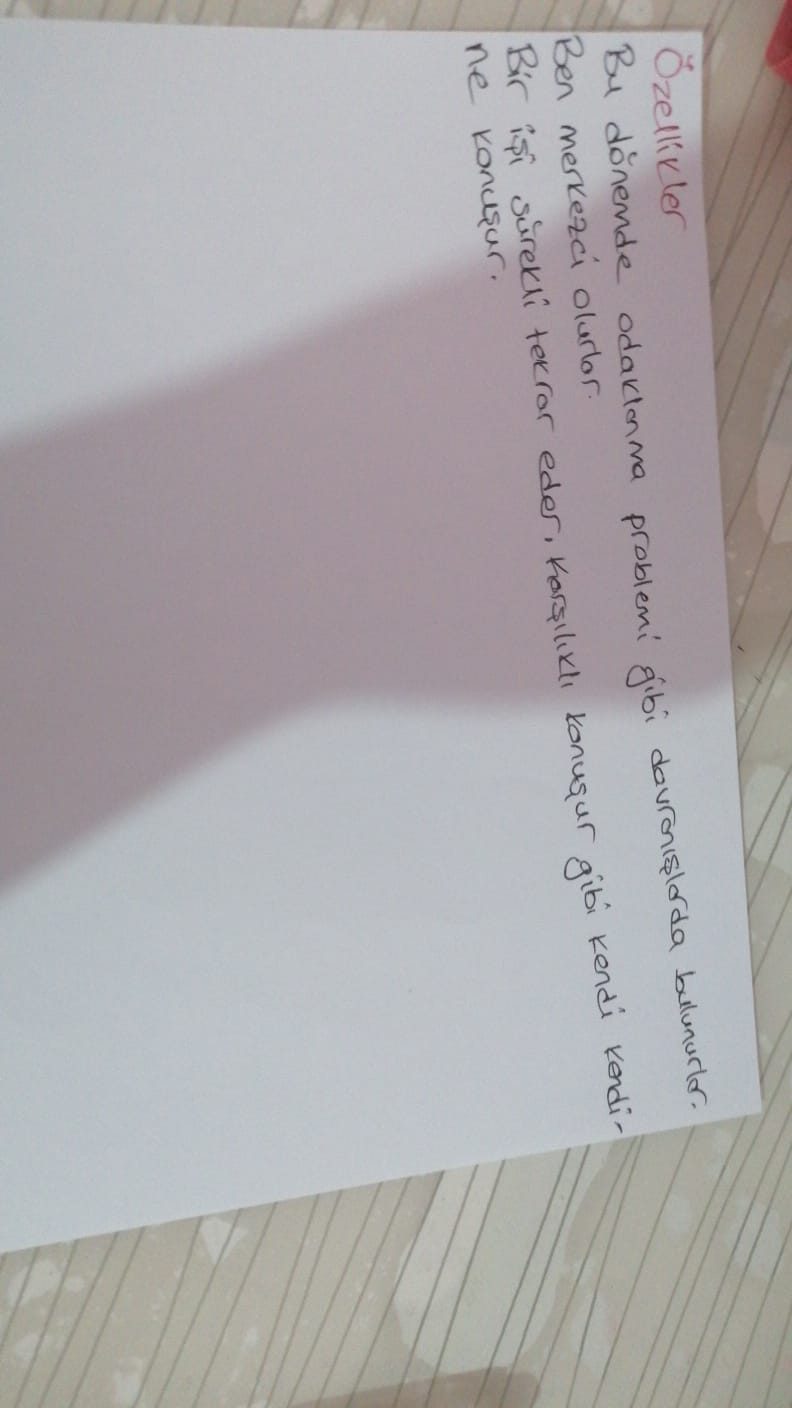 Özellikler
Bu dönemde odaklanma problemi gibi davranışlarda bulunurlar.
Ben merkezci olurlar.
Bir işi sürekli tekrar eder, karşılıklı konuşur gibi kendi kendi-
ne konuşur.